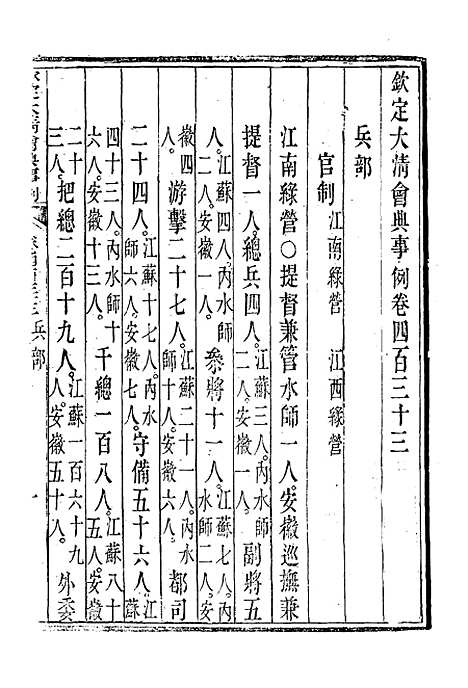 欽定大清會典事例卷四百三十三
兵部
官制 江南綠營 江西綠營
江南綠營○提督兼管水師一人安徽巡撫兼
提督一人。總兵四人。江蘇三人。內水師二人。安徽一人。副將五
人。江蘇四人。內水師二人。安徽一人。參將十一人。江蘇七人。內水師二人。安
徽四人。游擊二十七人。江蘇二十一人。內水師十人。安徽六人。都司
二十四人。江蘇十七人。內水師六人。安徽七人。守備五十六人。江蘇
四十三人。內水師十六人。安徽十三人。千總一百八人。江蘇八十五人。安徽
二十三人。把總二百十九人。江蘇一百六十九人。安徽五十人。外委
兵部 一